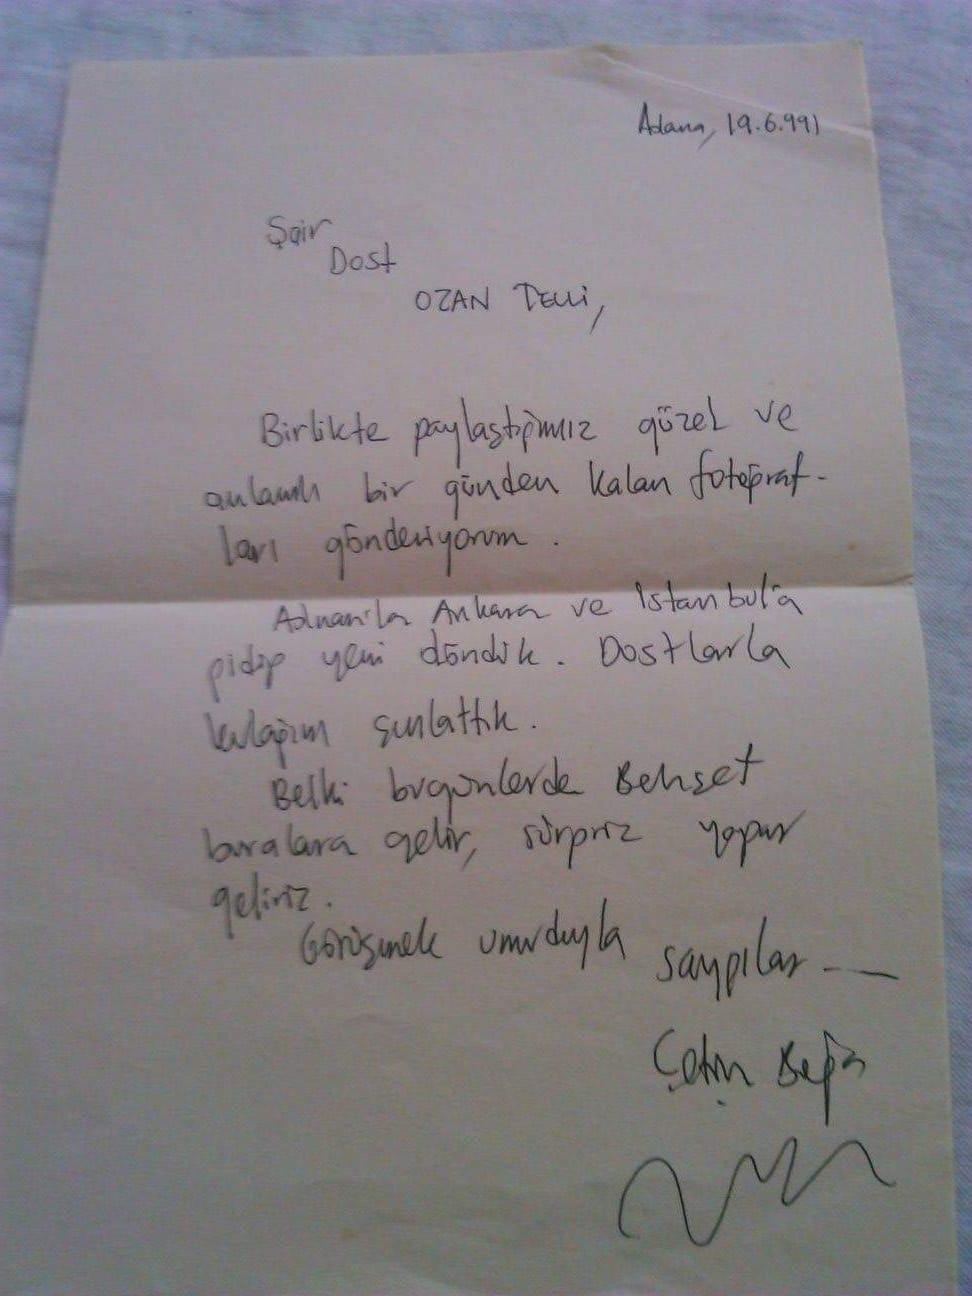 Adana, 19.6.991
Şair
Dost
OZAN TELLİ,
Birlikte paylaştığımız güzel ve
anlamlı bir günden kalan fotoğraf-
ları gönderiyorum.
Adnan'la Ankara ve İstanbul'a
gidip yeni döndük. Dostlarla
kulağını çınlattık.
Belki bugünlerde Behzet
buralara gelir, sürpriz yapar
geliriz.
Görüşmek umuduyla
saygılar
Çetin